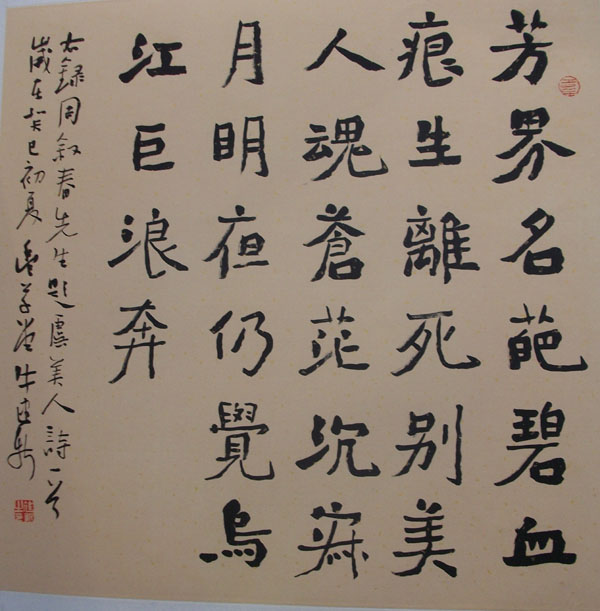 芳界名葩碧血
痕生離死别美
人魂蒼茫沉寐
月明夜仍覺烏
江巨浪奔
右錄周叙春先生題虞美人詩一首
歲在癸巳初夏 牛